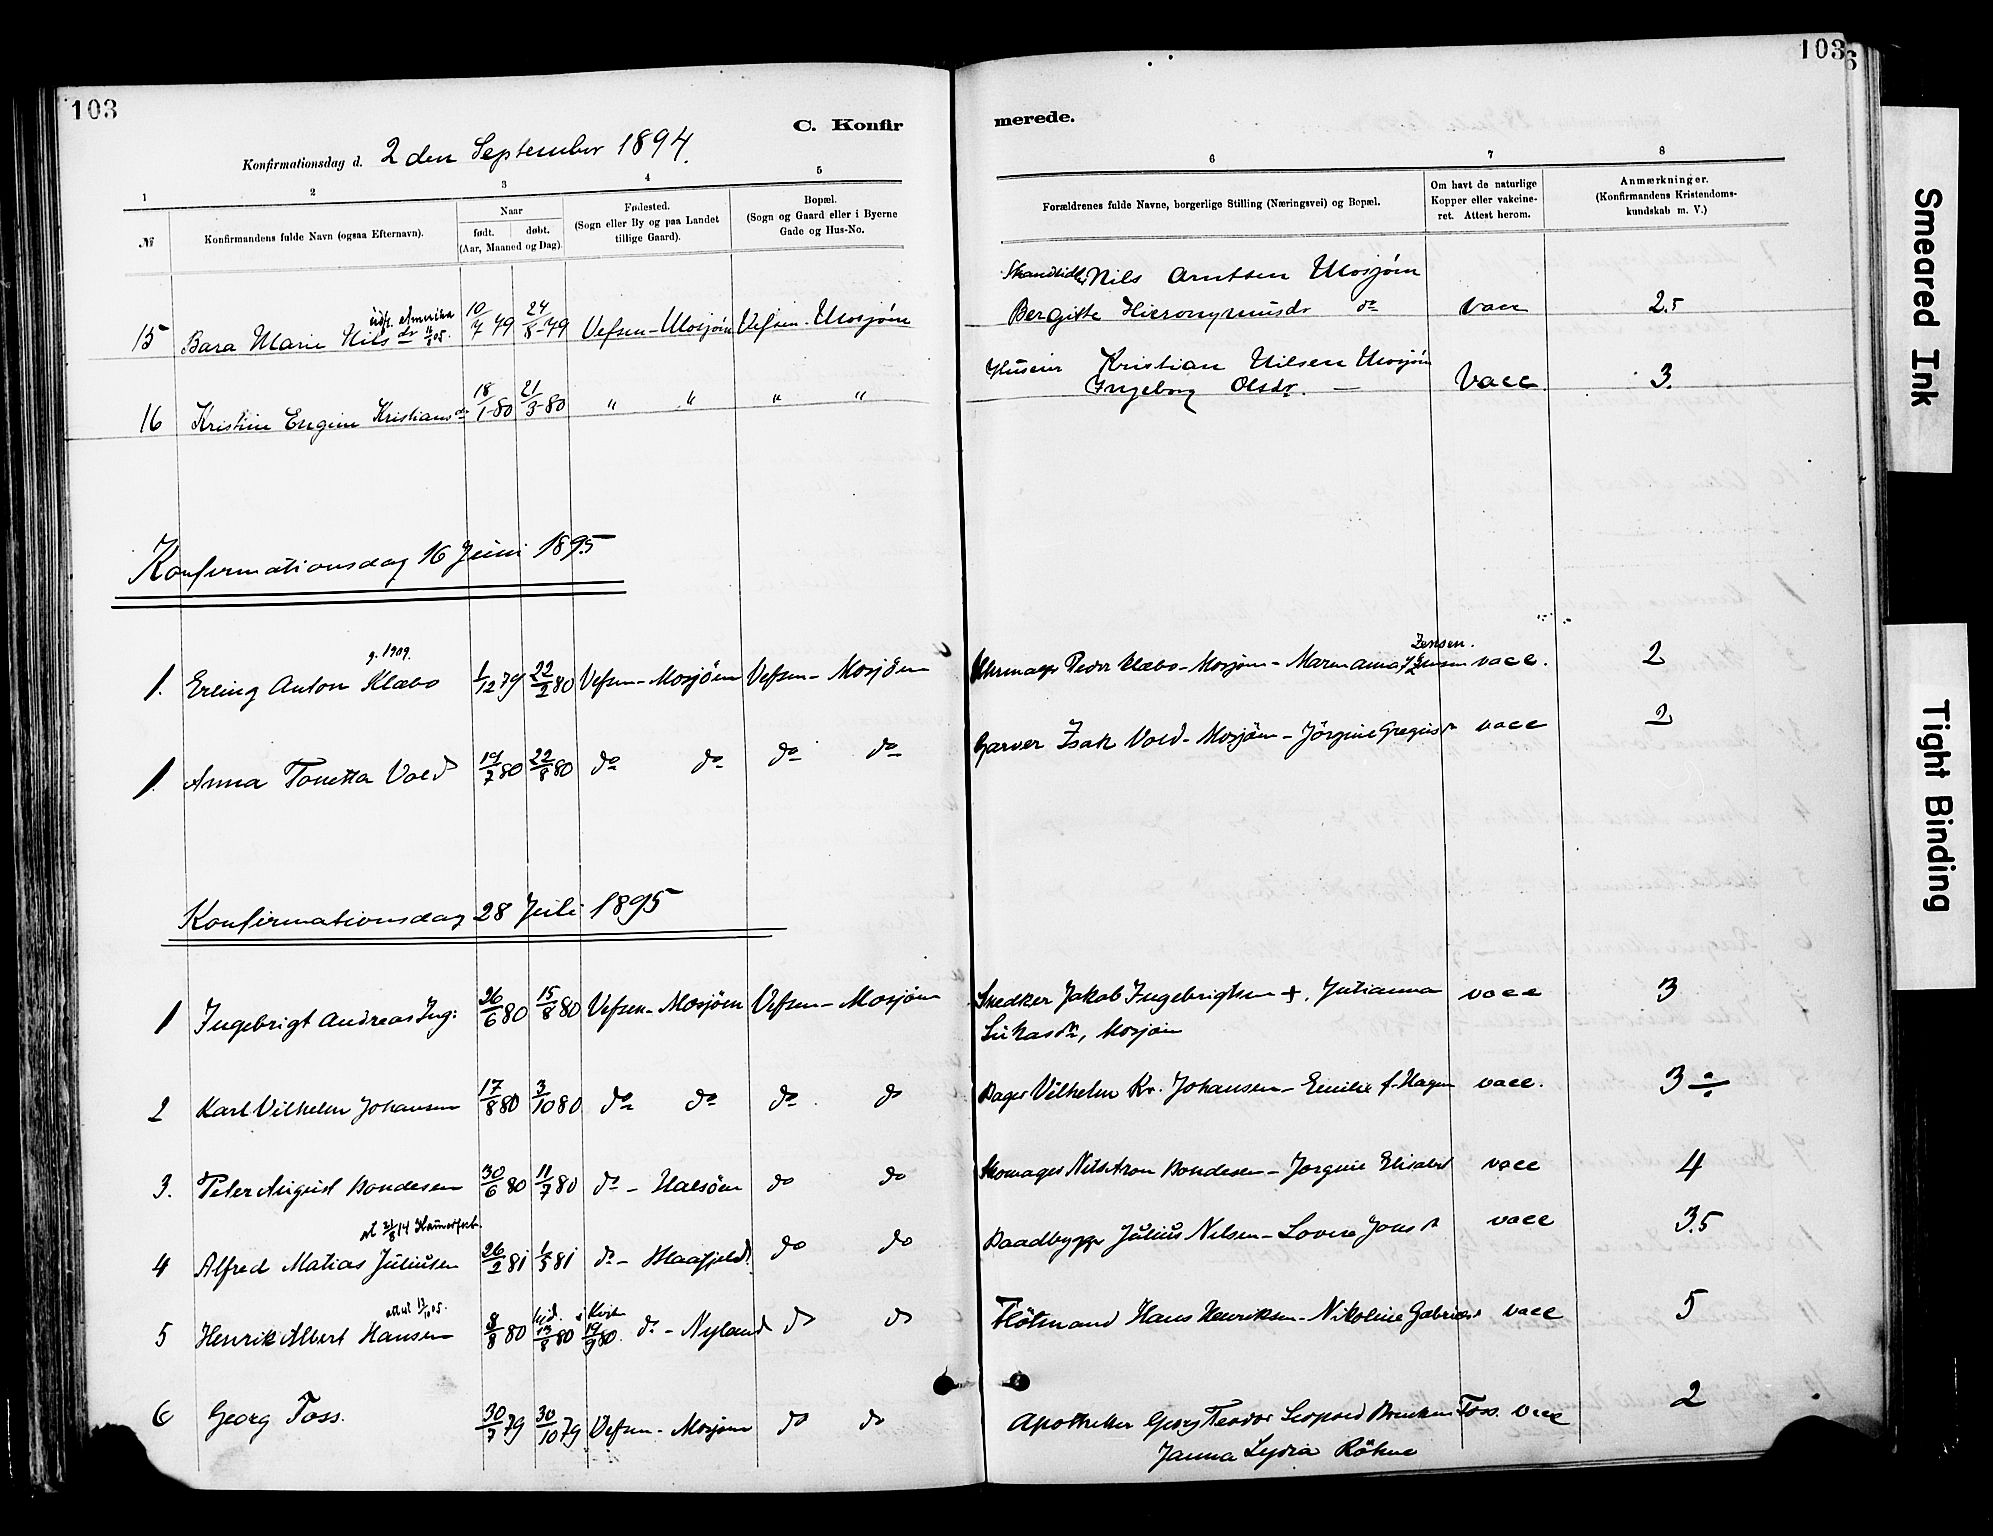 103
103
C. Konfir
merede.
Konfirmationsdag d. 2 den September 1894.
1 2 3 4 5 6 7 8
№
Konfirmandens fulde Navn (ogsaa Efternavn).
Naar
født. døbt.
(Aar, Maaned og Dag).
Fødested.
(Sogn eller By og paa Landet
tillige Gaard).
Bopæl.
(Sogn og Gaard eller i Byerne
Gade og Hus-No.
Forældrenes fulde Navne, borgerlige Stilling (Næringsvei) og Bopæl.
Om havt de naturlige
Kopper eller vakcine-
ret. Attest herom.
Anmærkninger.
(Konfirmandens Kristendoms-
kundskab m. V.)
Nils Arntsen Mosjøen
15 Bara Marie Nilsdr 10/7 79 24/8-79 Vefsen-Mosjøen Vefsen-Mosjøen Bergitte Hieronymusdr do vacc 2.5
Kristian Nilsen Mosjøen
16 Kristine Eugine Kristiansdr 18/1-80 21/3-80 " " " " Ingeborg Olsdr. — Vacc 3.
Konfirmationsdag 16 Juni 1895
g. 1909.
Jensen.
1. Erling Anton Klæbo 1/12 79 22/2 80 Vefsen-Mosjöen Vefsen-Mosjöen Uhrmager Peder Klæbo-Mosjøen-Marenanna Jensen vacc. 2
1. Anna Tonetta Vold 19/7 80 22/8 80 do do do do Garver Isak Vold-Mosjöen-Jörgine Gregusdr vacc 2
Konfirmationsdag 28 Juli 1895
1 Ingebrigt Andreas Ing: 26/6 80 15/8 80 Vefsen-Mosjöen Vefsen-Mosjöen Snedker Jakob Ingebrigtsen +, Julianna vacc 3
Lukasdr, Mosjöen
2 Karl Vilhelm Johansen 17/8 80 3/10 80 do do do do Bager Vilhelm Kr. Johansen-Emilie f. Hagen vacc. 3÷
3. Peter August Bondesen 30/6 80 11/7 80 do-Halsöen do do Skomager Nils Aron Bondesen-Jorgine Elisabet vacc 4
4 Alfred Matias Juliussen 26/2 81 1/5 81 do- do do Baadbygger Julius Nilsen-Lovise Jonsdr vacc 3.5
attest 13/10 05.
5 Henrik Albert Hansen 8/8 80 19/9 80. do-Nyland do do Flötmand Hans Henriksen-Nikoline Gabrielsdr vacc 5
6 Georg Foss. 30/7 79 30/10 79 Vefsen-Mosjøen do do Apotheker Georg Teodor Leopold Foss. vacc 2
Janna Lydia Röhne
Smeared Ink
Tight Binding